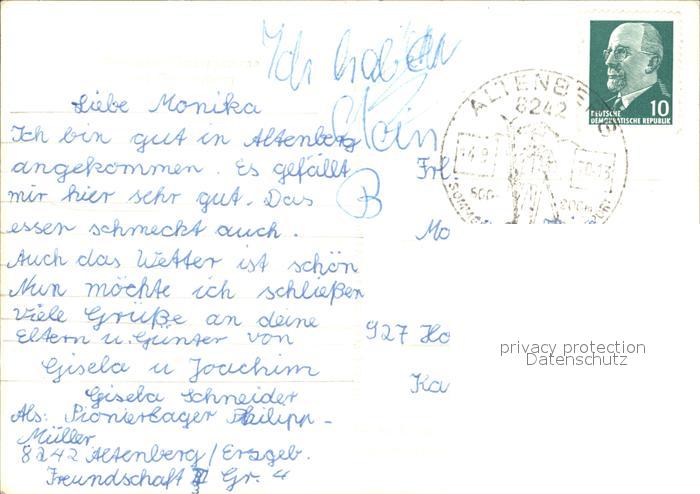 Ich habe
Klein
B
Liebe Monika
Ich bin gut in Altenberg
angekommen. Es gefällt
mir hier sehr gut. Das
essen schmeckt auch.
Auch das Wetter ist schön
Nun möchte ich schließen
Viele Grüße an deine
Eltern u. Günter von
Gisela u Joachim
Gisela Schneider
Abs: Pionierlager Philipp-
Müller
8242 Altenberg/Erzgeb.
Freundschaft II Gr. 4
ALTENBERG
8242
DEUTSCHE
DEMOKRATISCHE REPUBLIK
10
Frl.
Mo
927 Ho
Ka
privacy protection
Datenschutz